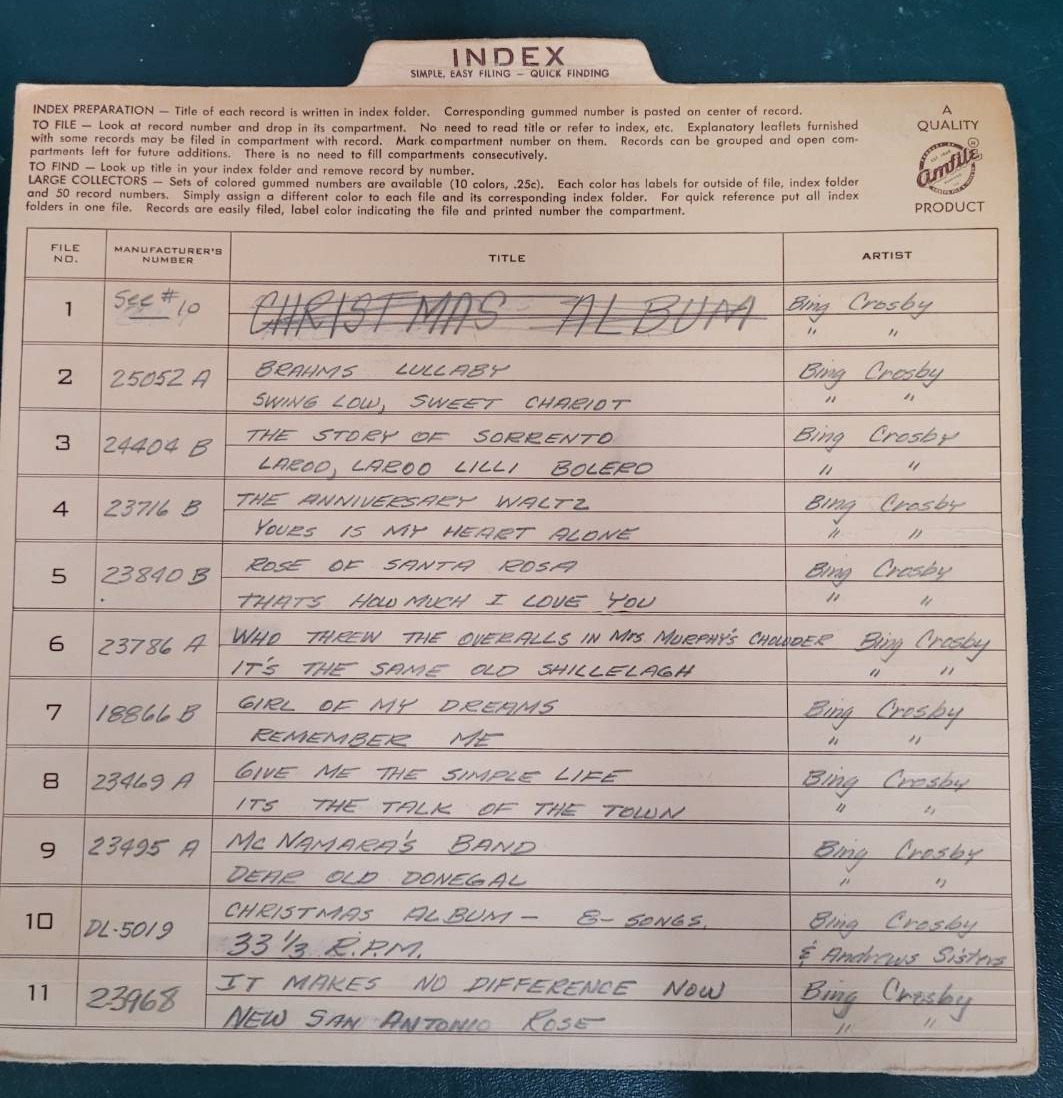 INDEX
SIMPLE, EASY FILING – QUICK FINDING
INDEX PREPARATION — Title of each record is written in index folder. Corresponding gummed number is pasted on center of record.
TO FILE — Look at record number and drop in its compartment. No need to read title or refer to index, etc. Explanatory leaflets furnished
with some records may be filed in compartment with record. Mark compartment number on them. Records can be grouped and open com-
partments left for future additions. There is no need to fill compartments consecutively.
TO FIND — Look up title in your index folder and remove record by number.
LARGE COLLECTORS — Sets of colored gummed numbers are available (10 colors, .25c). Each color has labels for outside of file, index folder
and 50 record numbers. Simply assign a different color to each file and its corresponding index folder. For quick reference put all index
folders in one file. Records are easily filed, label color indicating the file and printed number the compartment.
A
QUALITY
amfile
PRODUCT
FILE NO. MANUFACTURER'S NUMBER TITLE ARTIST
1 See # 10 CHRISTMAS ALBUM Bing Crosby
" "
2 25052 A BRAHMS LULLABY Bing Crosby
SWING LOW, SWEET CHARIOT " "
3 24404 B THE STORY OF SORRENTO Bing Crosby
LAROO, LAROO LILLI BOLERO " "
4 23716 B THE ANNIVERSARY WALTZ Bing Crosby
YOURS IS MY HEART ALONE " "
5 23840 B ROSE OF SANTA ROSA Bing Crosby
THATS HOW MUCH I LOVE YOU " "
6 23786 A WHO THREW THE OVERALLS IN MRS MURPHY'S CHOWDER Bing Crosby
IT'S THE SAME OLD SHILLELAGH " "
7 18866 B GIRL OF MY DREAMS Bing Crosby
REMEMBER ME " "
8 23469 A GIVE ME THE SIMPLE LIFE Bing Crosby
ITS THE TALK OF THE TOWN " "
9 23495 A MC NAMARA'S BAND Bing Crosby
DEAR OLD DONEGAL " "
10 DL-5019 CHRISTMAS ALBUM - 8- SONGS. Bing Crosby
33 1/3 R.P.M. & Andrews Sisters
11 23968 IT MAKES NO DIFFERENCE NOW Bing Crosby
NEW SAN ANTONIO ROSE " "